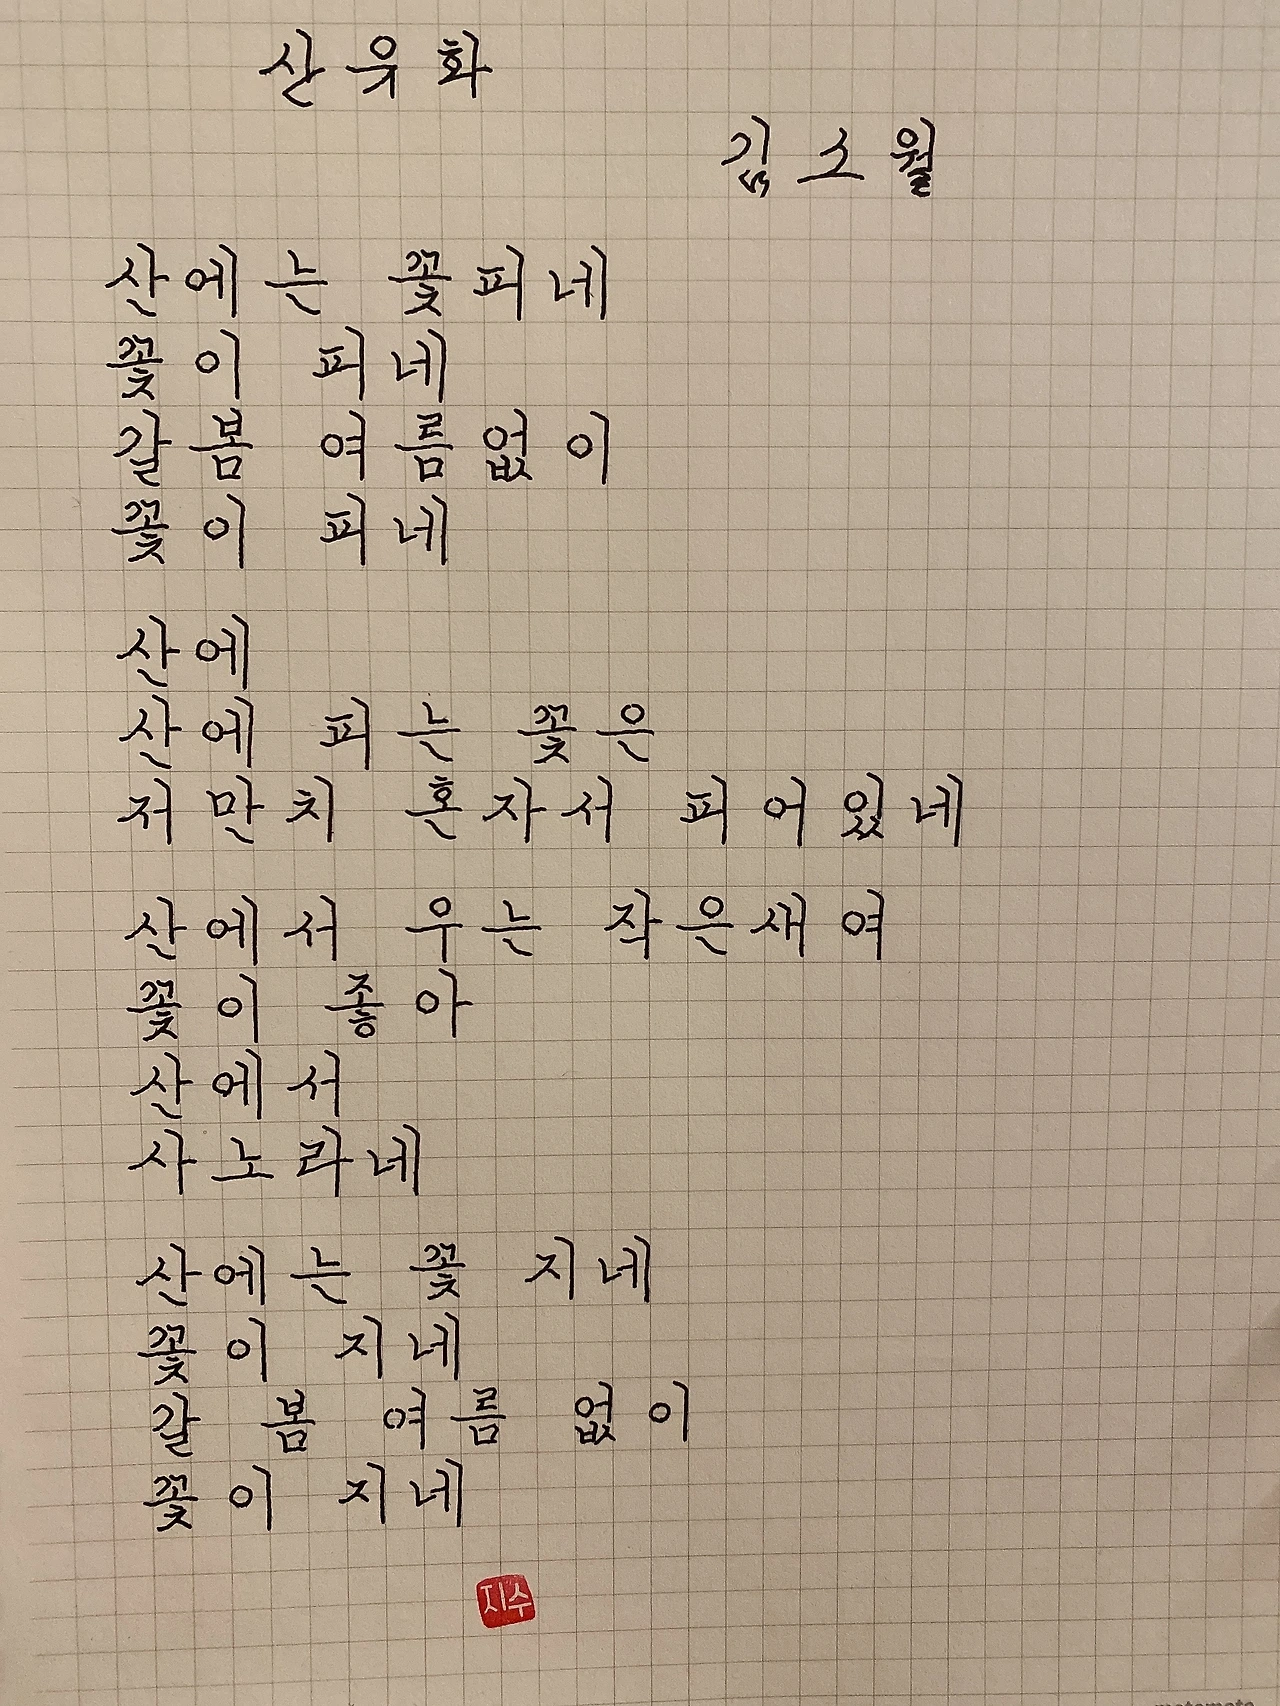 산유화
김소월
산에는 꽃피네
꽃이 피네
갈봄 여름없이
꽃이 피네
산에
산에 피는 꽃은
저만치 혼자서 피어있네
산에서 우는 작은새여
꽃이 좋아
산에서
사노라네
산에는 꽃 지네
꽃이 지네
갈 봄 여름 없이
꽃이 지네
지수